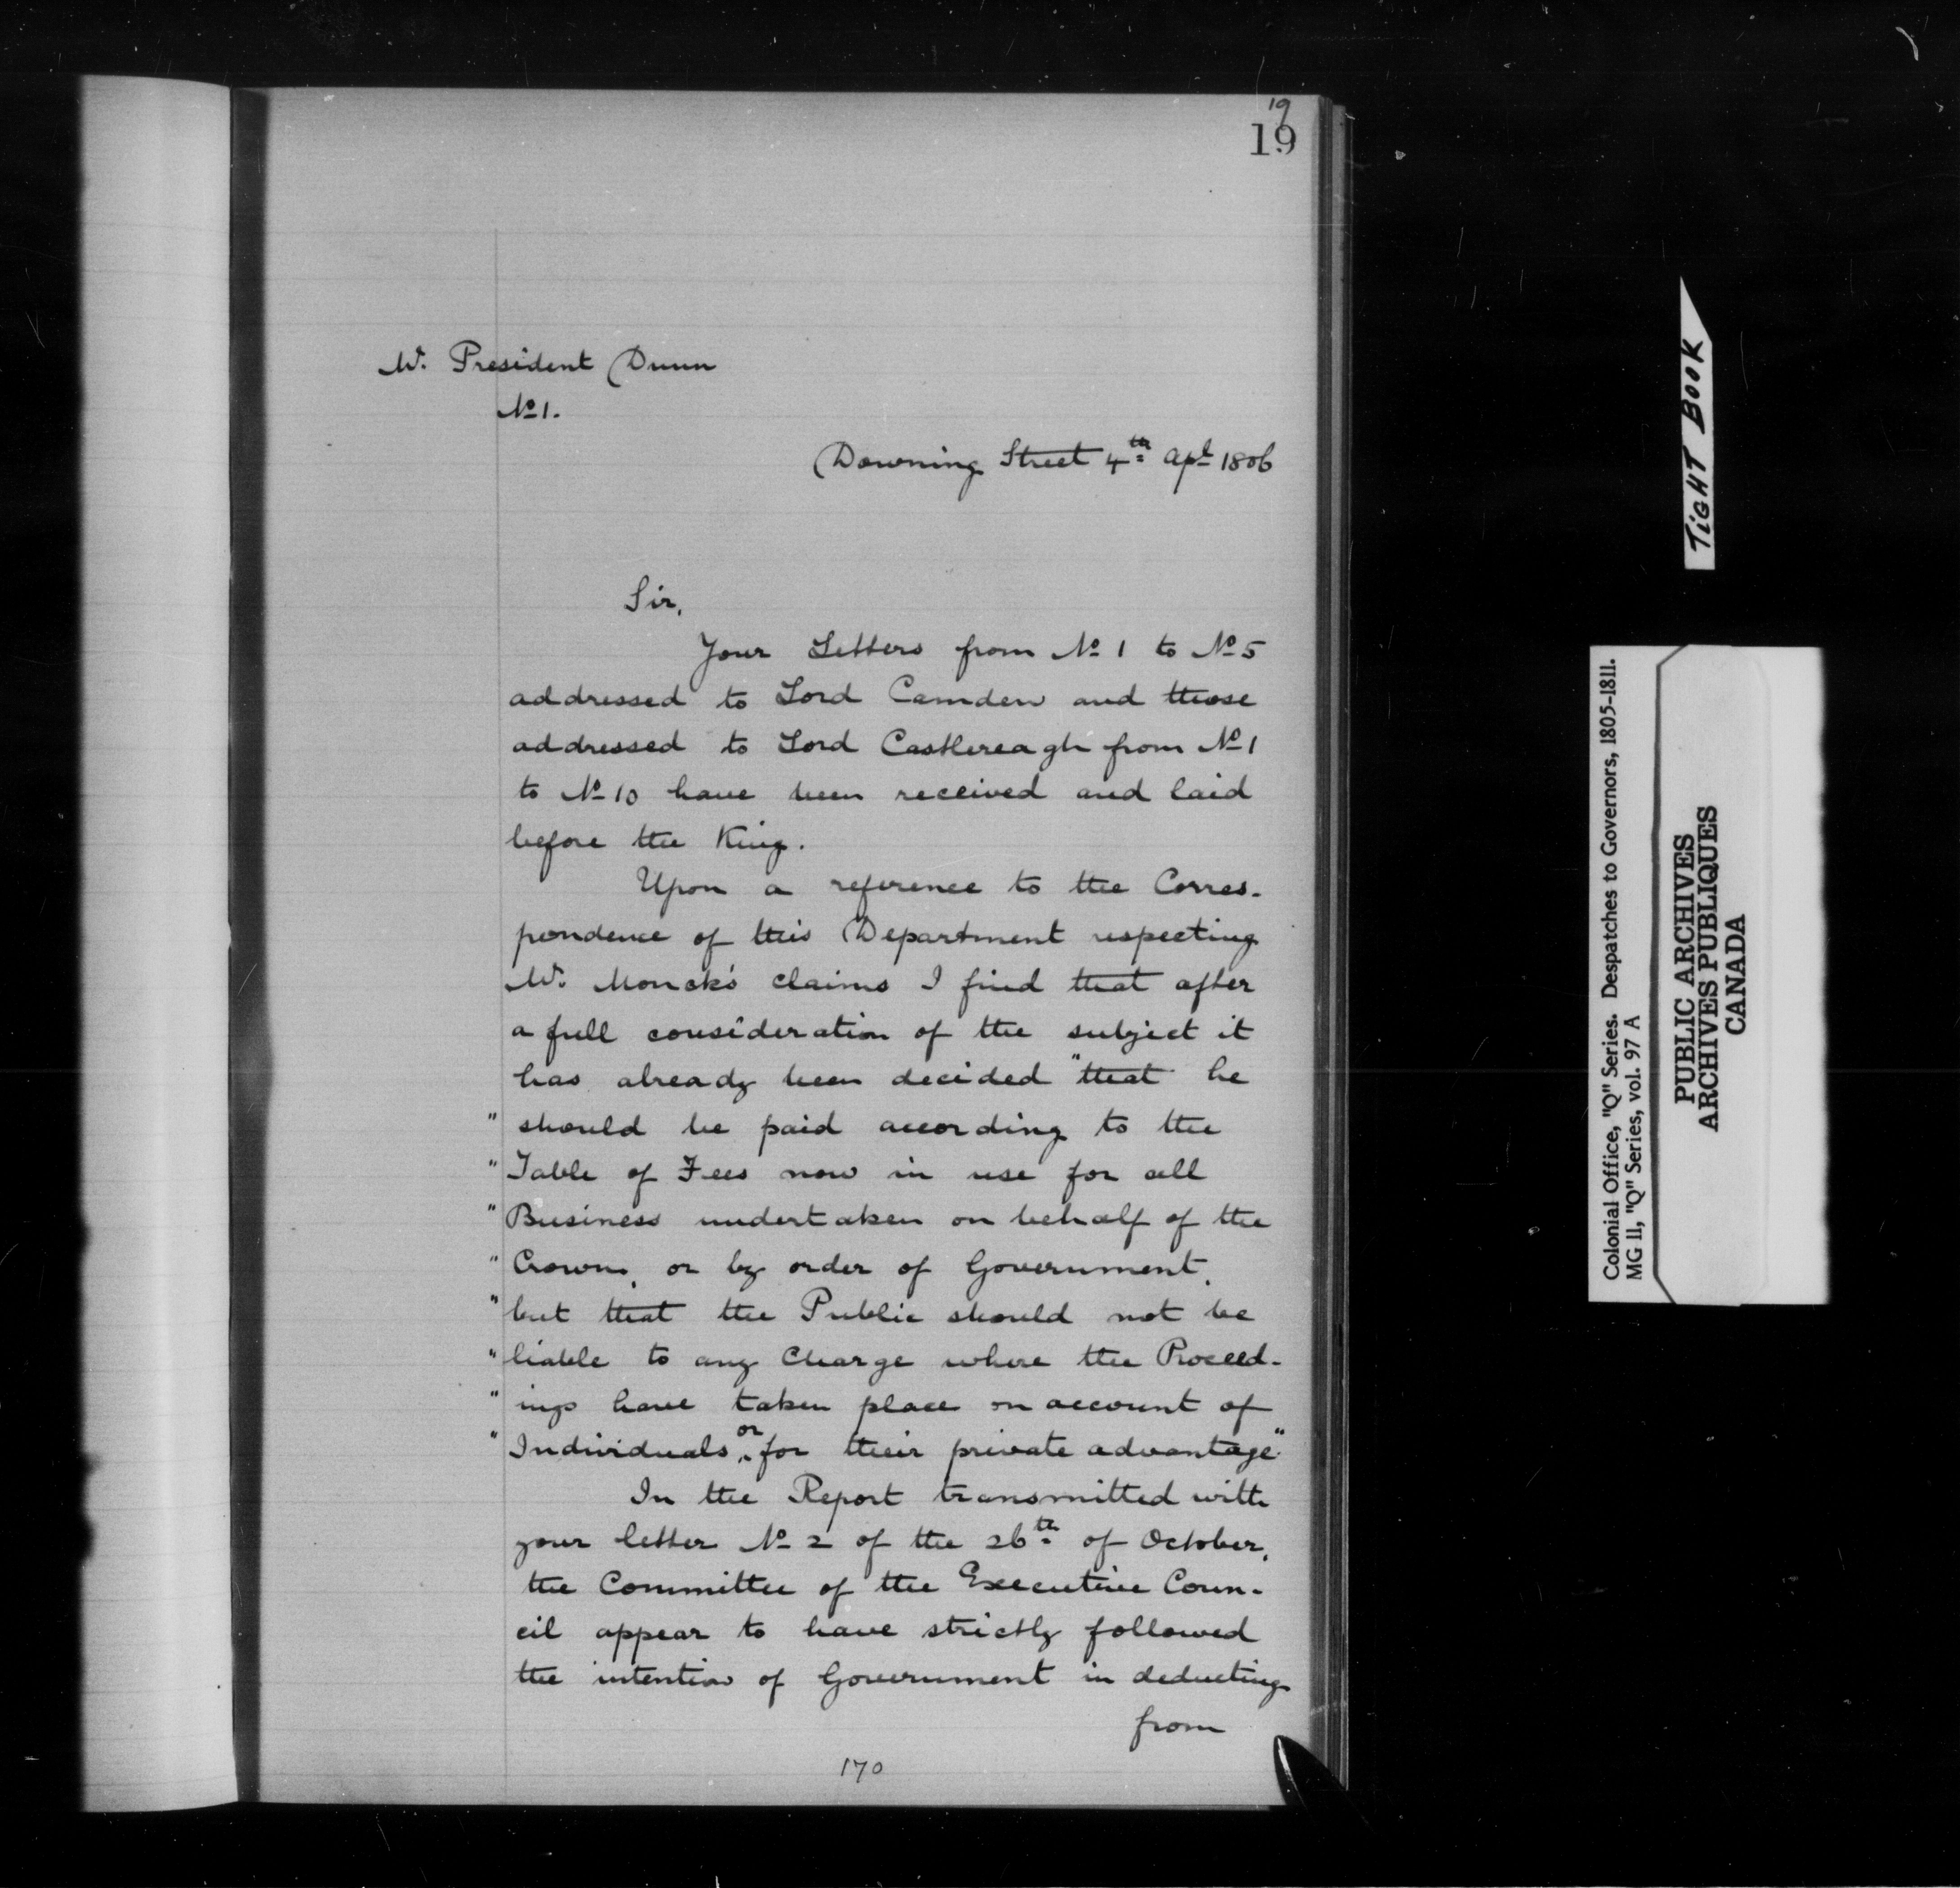 19
19
Mr. President Dunn
No 1.
Downing Street 4th Apl 1806
Sir,
Your Letters from No 1 to No 5
addressed to Lord Camden and those
addressed to Lord Castlereagh from No 1
to No 10 have been received and laid
before the King.
Upon a reference to the Corres-
pondence of this Department respecting
Mr. Monck's claims I find that after
a full consideration of the subject it
has already been decided "that he
" should be paid according to the
" Table of Fees now in use for all
" Business undertaken on behalf of the
" Crown, or by order of Government,
" but that the Public should not be
" liable to any Charge where the Proceed-
" ings have taken place on account of
" Individuals or for their private advantage"
In the Report transmitted with
your letter No 2 of the 26th of October,
the Committee of the Executive Coun-
cil appear to have strictly followed
the intention of Government in deducting
from
170
TIGHT BOOK
Colonial Office, "Q" Series. Despatches to Governors, 1805-1811.
MG 11, "Q" Series, vol. 97 A
PUBLIC ARCHIVES
ARCHIVES PUBLIQUES
CANADA